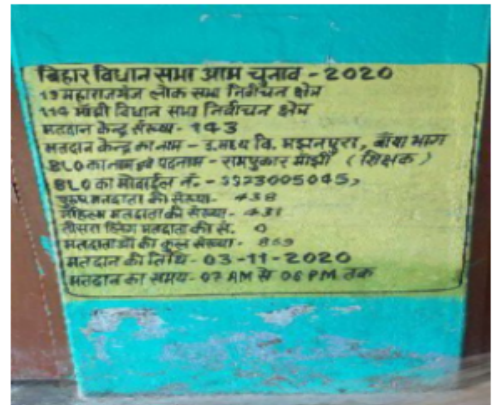 बिहार विधान सभा आम चुनाव - 2020
19 महाराजगंज लोक सभा निर्वाचन क्षेत्र
114 माँझी विधान सभा निर्वाचन क्षेत्र
मतदान केन्द्र संख्या - 143
मतदान केन्द्र का नाम - उ.मध्य वि. मझनपुरा, बाँया भाग
BLO का नाम एवं पदनाम - रामपुकार माँझी ( शिक्षक )
BLO का मोबाईल नं. -
पुरुष मतदाता की संख्या - 438
महिला मतदाता की संख्या - 431
तीसरा लिंग मतदाता की सं. 0
मतदाताओं की कुल संख्या - 869
मतदान की तिथि - 03-11-2020
मतदान का समय - 07 AM से 06 PM तक